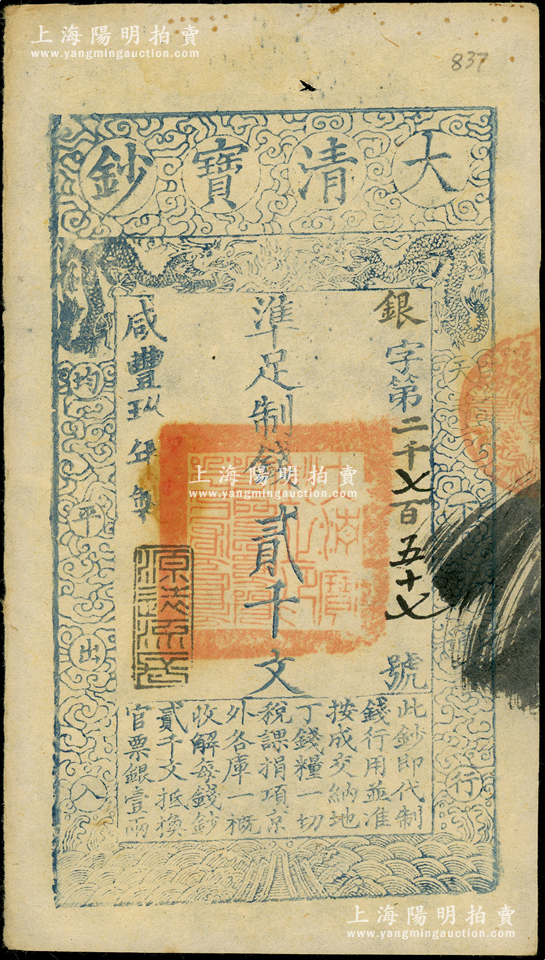 上海陽明拍賣
www.yangmingauction.com
837
大清寶鈔
銀字第二千七百五十七號
準足制錢貳千文
咸豐玖年製
天下
行
均平出入
此鈔即代制
錢行用並准
按成交納地
丁錢糧一切
稅課捐項京
外各庫一概
收解每錢鈔
貳千文抵換
官票銀壹兩
上海陽明拍賣
www.yangmingauction.com
上海陽明拍賣
www.yangmingauction.com